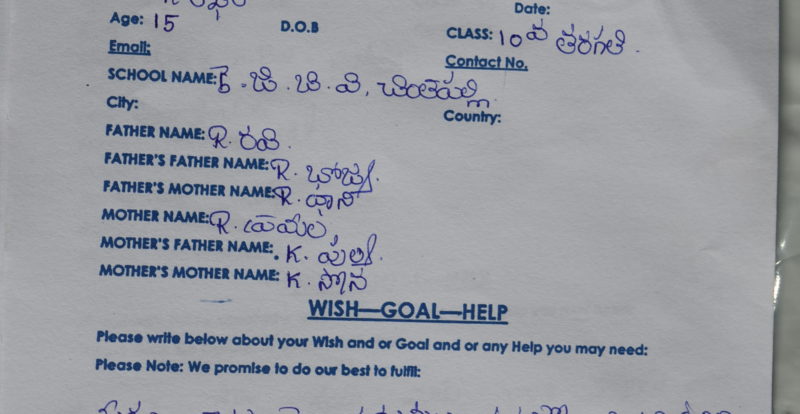 Date:
Age: 15 D.O.B CLASS: 10వ తరగతి.
Email: Contact No.
SCHOOL NAME: కె.జి.బి.వి, చింతపల్లి
City: Country:
FATHER NAME: R. రవి.
FATHER'S FATHER NAME: R. భోజ్య.
FATHER'S MOTHER NAME: R. థాని
MOTHER NAME: R.
MOTHER'S FATHER NAME: K.
MOTHER'S MOTHER NAME: K. సోన
WISH—GOAL—HELP
Please write below about your Wish and or Goal and or any Help you may need:
Please Note: We promise to do our best to fulfil: